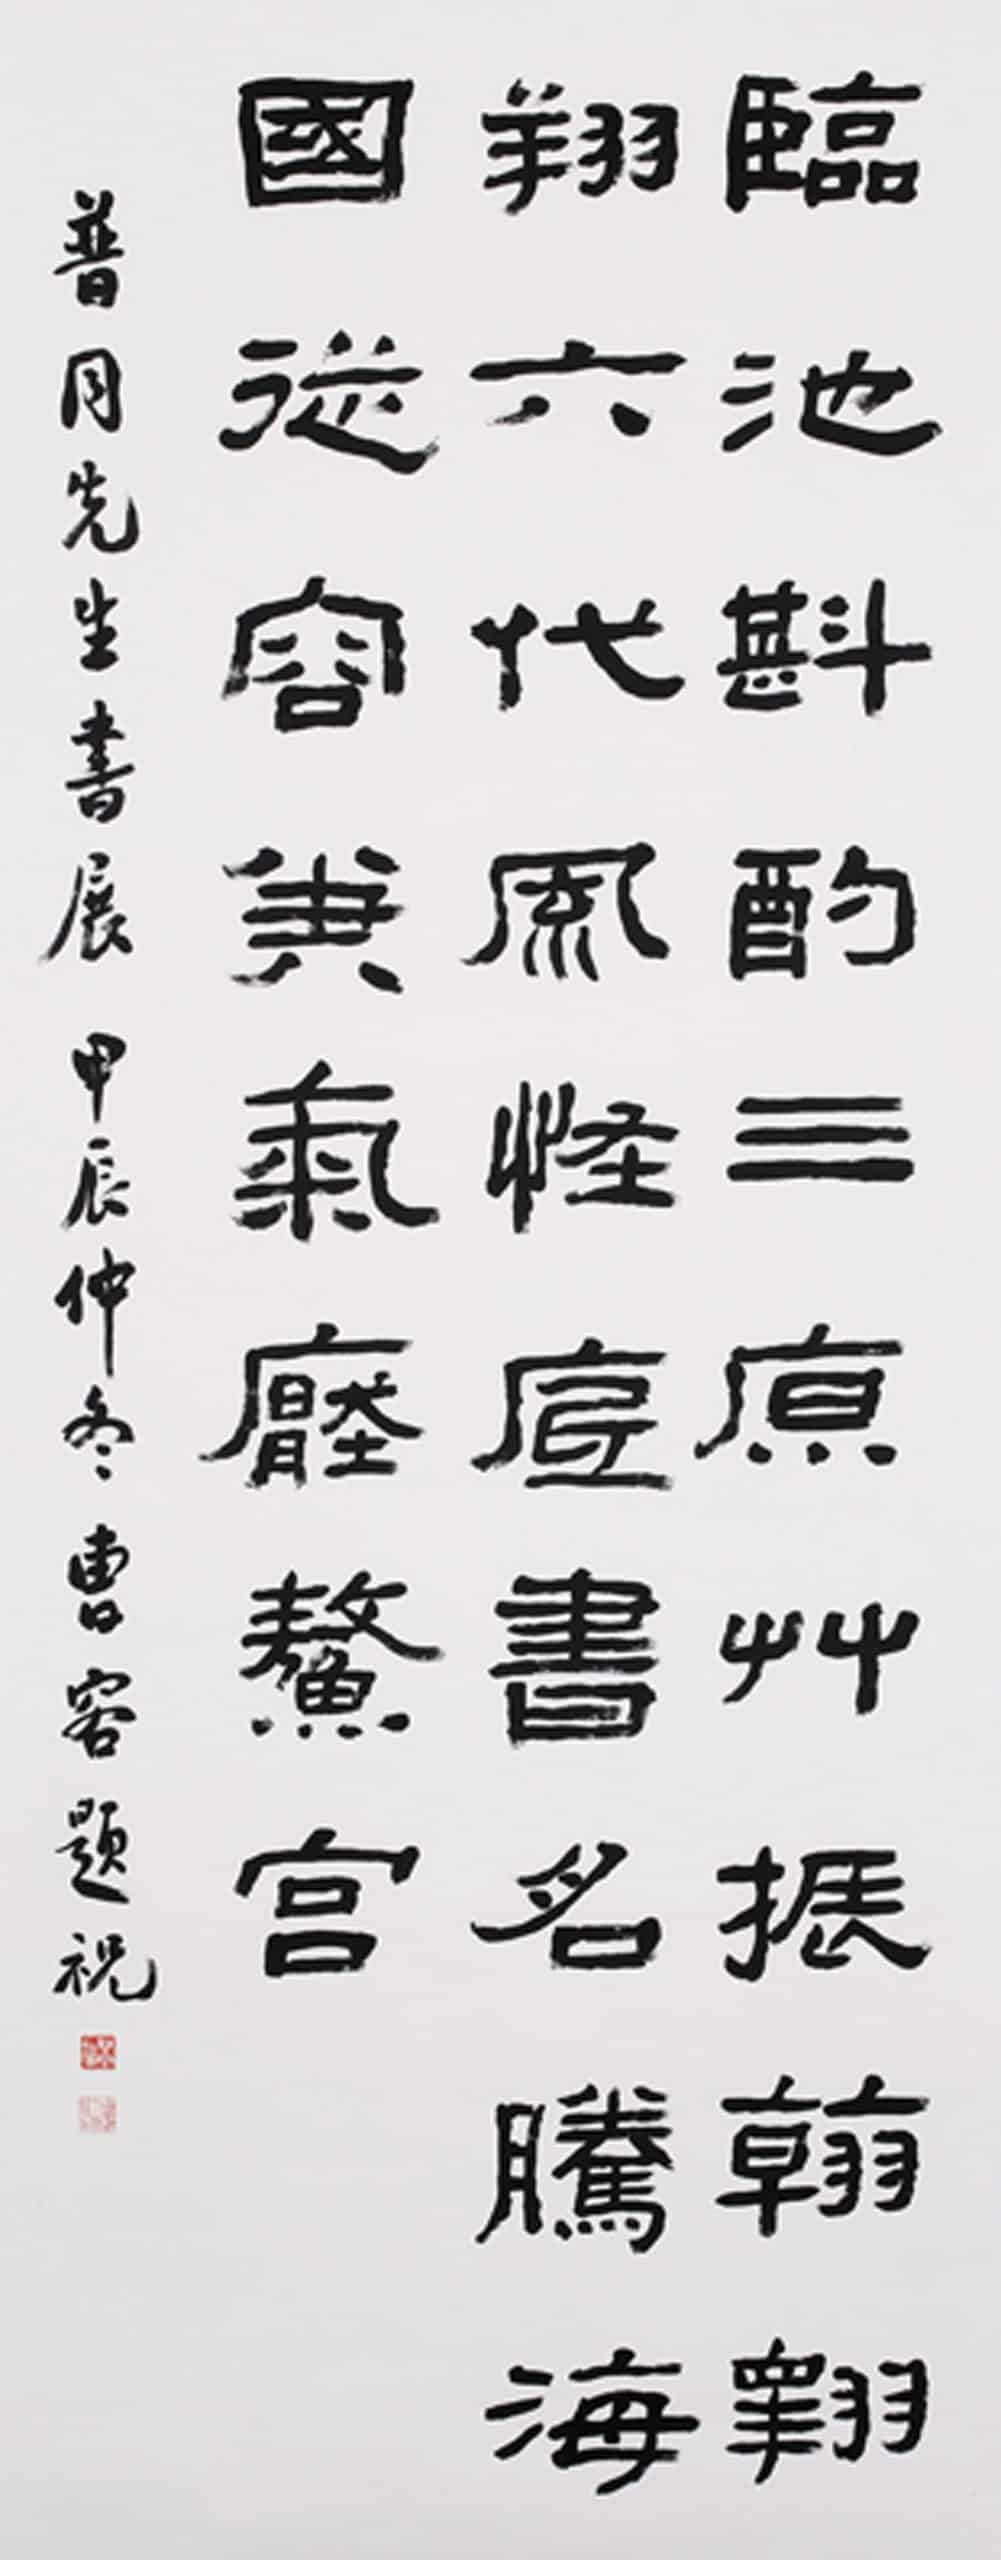 臨池斟酌三原艸振翰翱
翔六代風怪底書名騰海
國從容氣壓鰲宮
普同先生書展 甲辰仲冬 曹容題祝